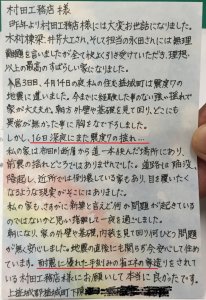 村田工務店様
昨年より村田工務店様には大変お世話になりました。
木村棟梁、井芹大工さん、そして担当の永田さんには無理
難題を言いましたが全て快よく引き受けていただき、理想
以上の最高のすばらしい家になりました。
入居3日、4月14日の夜、私の住む益城町は震度7の
地震に遭いました。今までに経験した事のない強い揺れで
家が大丈夫か、朝方、外壁や基礎を見て回り、どこにも
異常が無かった事に胸をなで下ろしました。
しかし、16日深夜にまた震度7の揺れ…
私の家は布田川断層から道一本挟んだ場所にあり、
前震の揺れどころではありませんでした。道路は陥没、
隆起し、近所では倒壊している家もあり、目を覆いたく
なるような現実がそこにはありました。
私の家も、さすがに新築と言えど何か問題が起きている
のではないかと思い落胆して一夜を過しました。
朝になり、家の外壁や基礎、内装を見て回り、何ひとつ問題
が無く安心しました。地震の直後にも関らず今安心して住め
ています。耐震に優れた平屋の省エネの家造りをされている
村田工務店様にお願いして本当に良かったです。
上益城郡益城町下陳